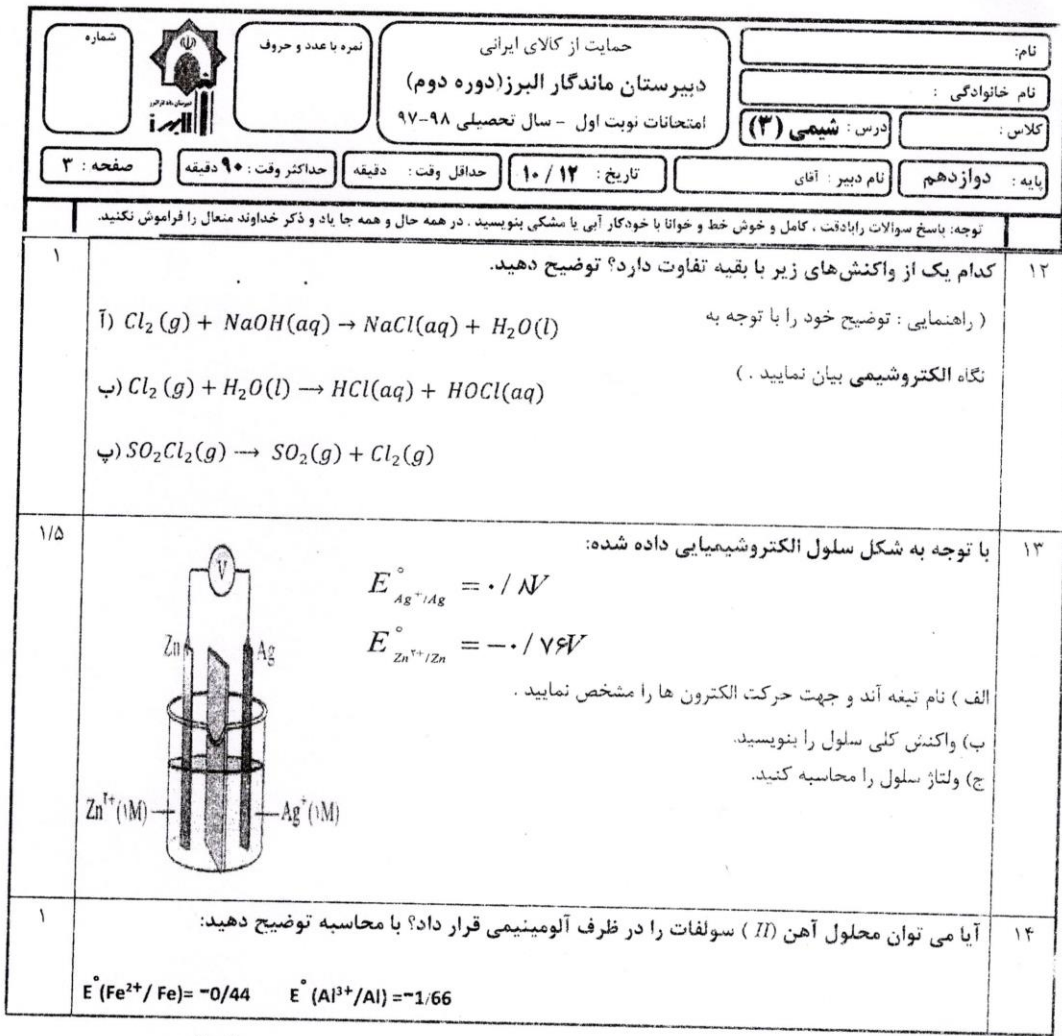 نام:
نام خانوادگی :
کلاس :
درس : شیمی (۳)
حمایت از کالای ایرانی
دبیرستان ماندگار البرز(دوره دوم)
امتحانات نوبت اول - سال تحصیلی ۹۸-۹۷
نمره با عدد و حروف
شماره
پایه : دوازدهم
نام دبیر : آقای
تاریخ : ۱۲ / ۱۰
حداقل وقت : دقیقه
حداکثر وقت : ۹۰ دقیقه
صفحه : ۳
توجه: پاسخ سوالات رابادقت ، کامل و خوش خط و خوانا با خودکار آبی یا مشکی بنویسید . در همه حال و همه جا یاد و ذکر خداوند متعال را فراموش نکنید.
۱۲ کدام یک از واکنش‌های زیر با بقیه تفاوت دارد؟ توضیح دهید. ۱
( راهنمایی : توضیح خود را با توجه به
نگاه الکتروشیمی بیان نمایید . )
آ) Cl₂ (g) + NaOH(aq) → NaCl(aq) + H₂O(l)
ب) Cl₂ (g) + H₂O(l) → HCl(aq) + HOCl(aq)
پ) SO₂Cl₂(g) → SO₂(g) + Cl₂(g)
۱۳ با توجه به شکل سلول الکتروشیمیایی داده شده: ۱/۵
E°Ag⁺/Ag = ۰/۸V
E°Zn²⁺/Zn = −۰/۷۶V
الف ) نام تیغه آند و جهت حرکت الکترون ها را مشخص نمایید .
ب) واکنش کلی سلول را بنویسید.
ج) ولتاژ سلول را محاسبه کنید.
V
Zn
Ag
Zn²⁺(۱M)
Ag⁺(۱M)
۱۴ آیا می توان محلول آهن (II) سولفات را در ظرف آلومینیمی قرار داد؟ با محاسبه توضیح دهید: ۱
E°(Fe²⁺/ Fe)= ⁻0/44 E°(Al³⁺/Al) =⁻1/66